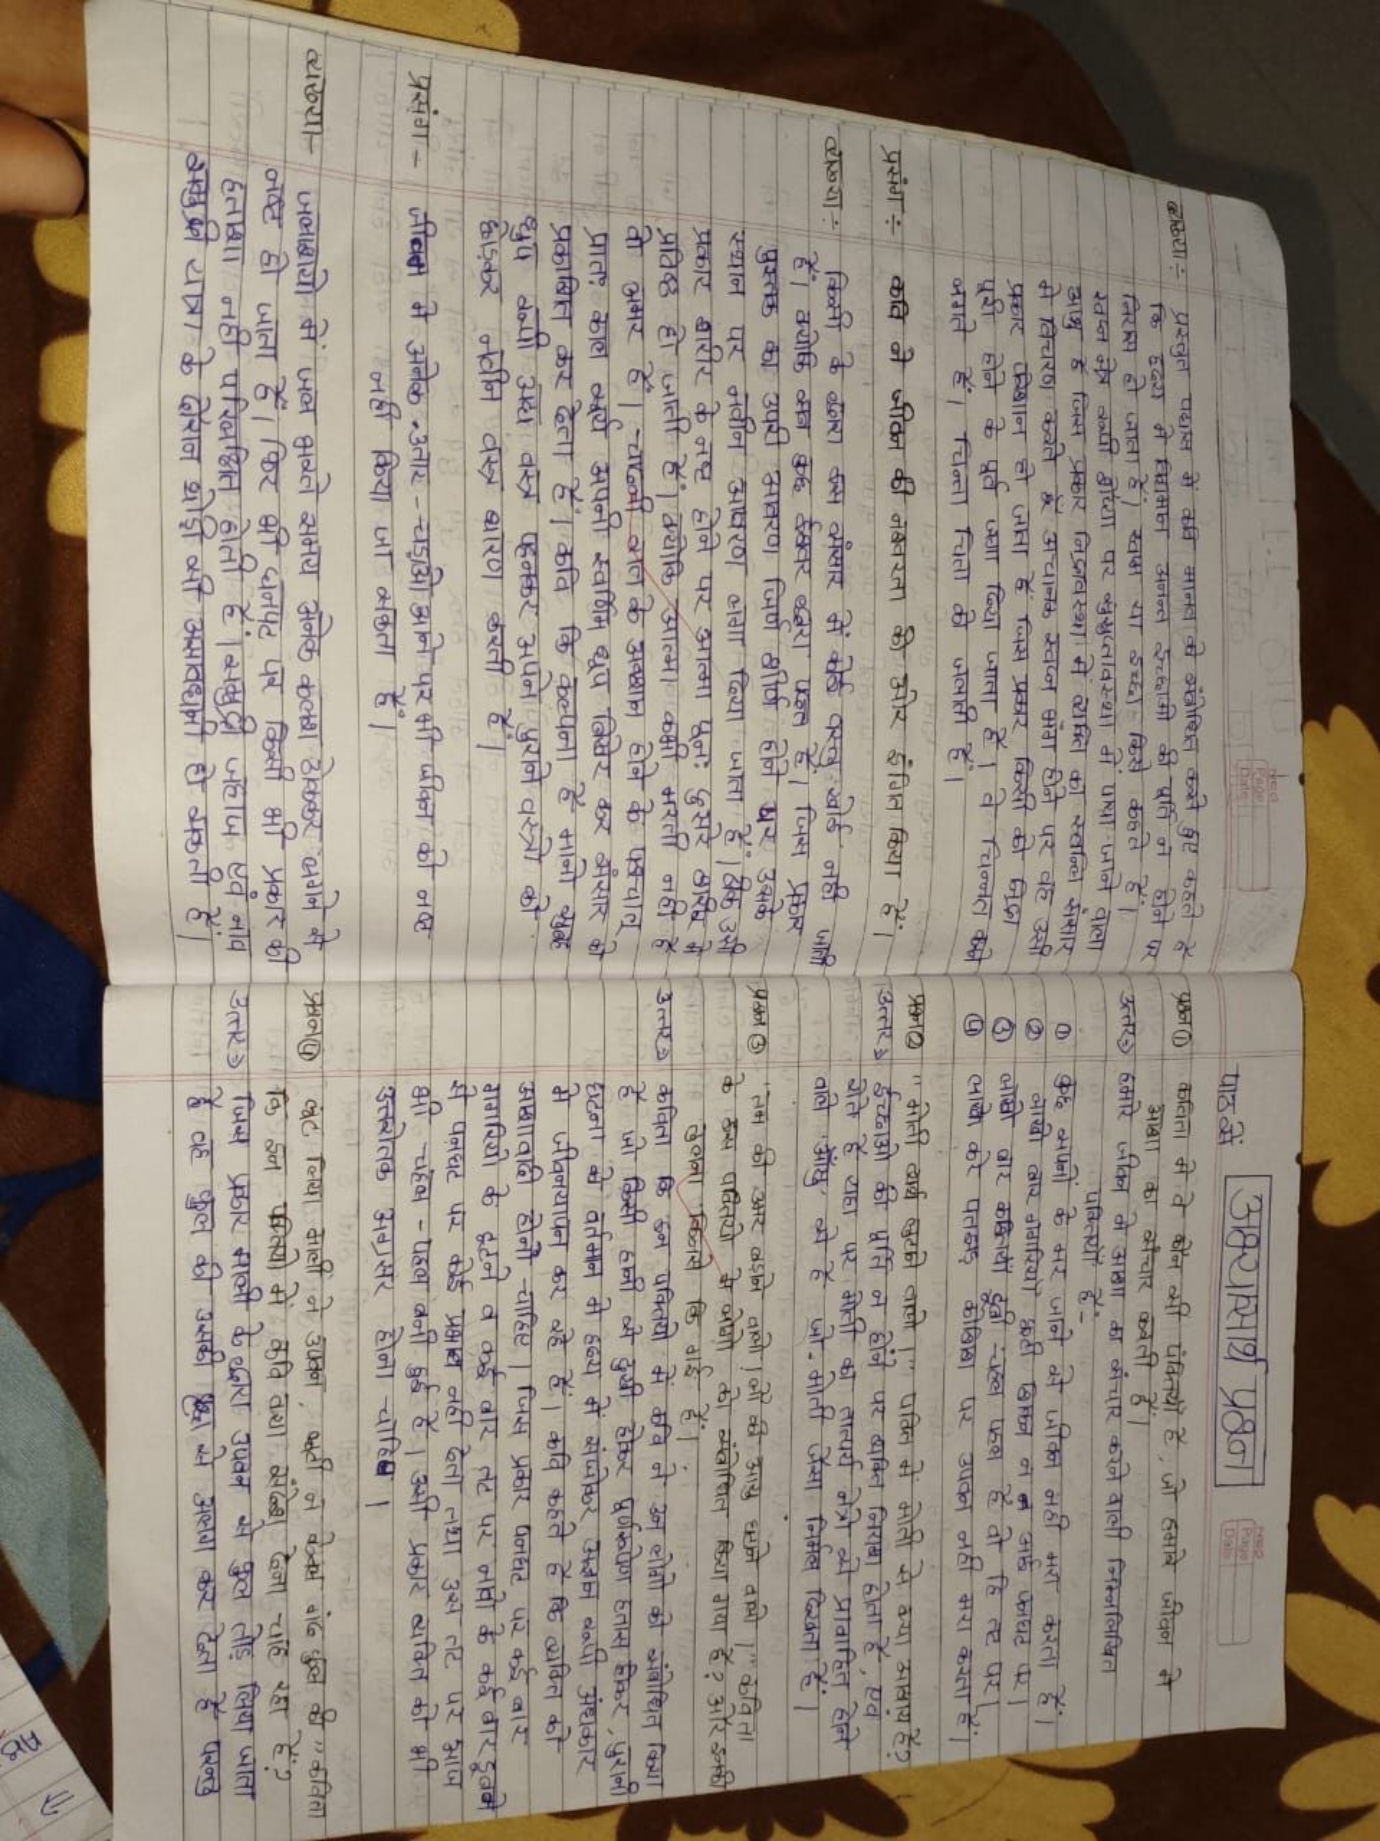 व्याख्या:- प्रस्तुत पद्यांश में कवि मानव को संबोधित करते हुए कहते है
कि हृदय मे विद्यमान अनन्त इच्छाओं की पूर्ति न होने पर
निराश हो जाता है। सपना या इच्छा किसे कहते है।
स्वप्न नेत्र रूपी शैय्या पर सुसुप्तावस्था में पाया जाने वाला
अश्रु है जिस प्रकार निद्रावस्था मे व्यक्ति को स्वप्निल संसार
मे विचरण करते है अचानक स्वप्न भंग होने पर वह उसी
प्रकार परेशान हो जाता है जिस प्रकार किसी को निद्रा
पूरी होने के पूर्व जगा दिया जाता है। वे चिन्ता करने
लगते है। चिन्ता चिता को जलाती है।
प्रसंग:- कवि ने जीवन की नश्वरता की ओर इंगित किया है।
व्याख्या:- किसी के द्वारा इस संसार में कोई वस्तु खोई नही जाती
है। क्योंकि सब कुछ ईश्वर द्वारा प्रदत्त है। जिस प्रकार
पुस्तक का उपरी आवरण जिर्ण शीर्ण होने पर उसके
स्थान पर नवीन आवरण लगा दिया जाता है। ठिक उसी
प्रकार शरीर के नष्ट होने पर आत्मा पुनः दुसरे शरीर मे
प्रविष्ठ हो जाती है। क्योंकि आत्मा कभी मरती नही है
वो अमर है। चाँदनी रात के अवसान होने के पश्चात्
प्रातः काल सूर्य अपनी स्वर्णिम धूप बिखेर कर संसार को
प्रकाशित कर देता है। कवि कि कल्पना है मानो सुबह
धूप रूपी उषा वस्त्र पहनकर अपने पुराने वस्त्रो को
छोड़कर नवीन वस्त्र धारण करती है।
प्रसंग:- जीवन मे अनेक उतार-चढ़ाव आने पर भी जीवन को नष्ट
नही किया जा सकता है।
व्याख्या:- जलाशयो मे जल भरते समय अनेक कलश टकराकर लगने से
नष्ट हो जाता है। फिर भी पनघट पर किसी भी प्रकार की
हताशा नही परिलक्षित होती है। समुद्री जहाज एवं नाव
समुद्री यात्रा के दौरान थोड़ी भी असावधानी हो सकती है।
पाठ में अभ्यासार्थ प्रश्न
प्रश्न① कविता मे वे कौन सी पंक्तियाँ है, जो हमारे जीवन मे
आशा का संचार करती है।
उत्तर→ हमारे जीवन मे आशा का संचार करने वाली निम्नलिखित
पंक्तियाँ है:-
① कुछ सपनो के मर जाने से जीवन नही मरा करता है।
② लाखों बार गगरियाँ फूटी शिकन न आई पनघट पर।
③ लाखो बार कश्तियाँ डूबी चहल पहल है वो ही तट पर।
④ लाखो करे पतझड़ कोशिश पर उपवन नही मरा करता है।
प्रश्न② "मोती व्यर्थ लुटाने वालो।" पंक्ति मे मोती से क्या आशय है?
उत्तर→ ईच्छाओ की पूर्ति न होने पर व्यक्ति निराश होता है, एवं
रोते है यहा पर मोती का तात्पर्य नेत्रो से प्रवाहित होने
वाले 'आँसु' से है जो मोती जैसा निर्मल दिखता है।
प्रश्न③ 'तम की उमर बढ़ाने वालो। लौ की आयु घटाने वालो।" कविता
के इस पंक्तियो मे लोगो को संबोधित किया गया है? और इनकी
तुलना किससे कि गई है।
उत्तर→ कविता कि इन पंक्तियो मे कवि ने उन लोगो को संबोधित किया
है जो किसी हानी से दुखी होकर पूर्णरूपेण हताश होकर, पुरानी
घटना को वर्तमान मे हृदय मे संजोकर अज्ञान रूपी अंधकार
मे जीवनयापन कर रहे है। कवि कहते है कि व्यक्ति को
आशावादी होनी चाहिए। जिस प्रकार पनघट पर कई बार
गगरियो के फूटने व कई बार तट पर नावो के कई बार डूबने
से पनघट पर कोई प्रभाव नही देता तथा उस तट पर आज
भी चहल-पहल बनी हुई है। उसी प्रकार व्यक्ति को भी
उत्तरोत्तर अग्रसर होना चाहिए।
प्रश्न④ लूट लिया माली ने उपवन, लूटी न लेकिन गंध फूल की" कविता
कि इन पंक्तियो मे कवि क्या संदेश देना चाह रहा है?
उत्तर→ जिस प्रकार माली के द्वारा उपवन से फूल तोड़ लिया जाता
है वह फूल की उसकी खुशबु से अलग कर देता है परन्तु